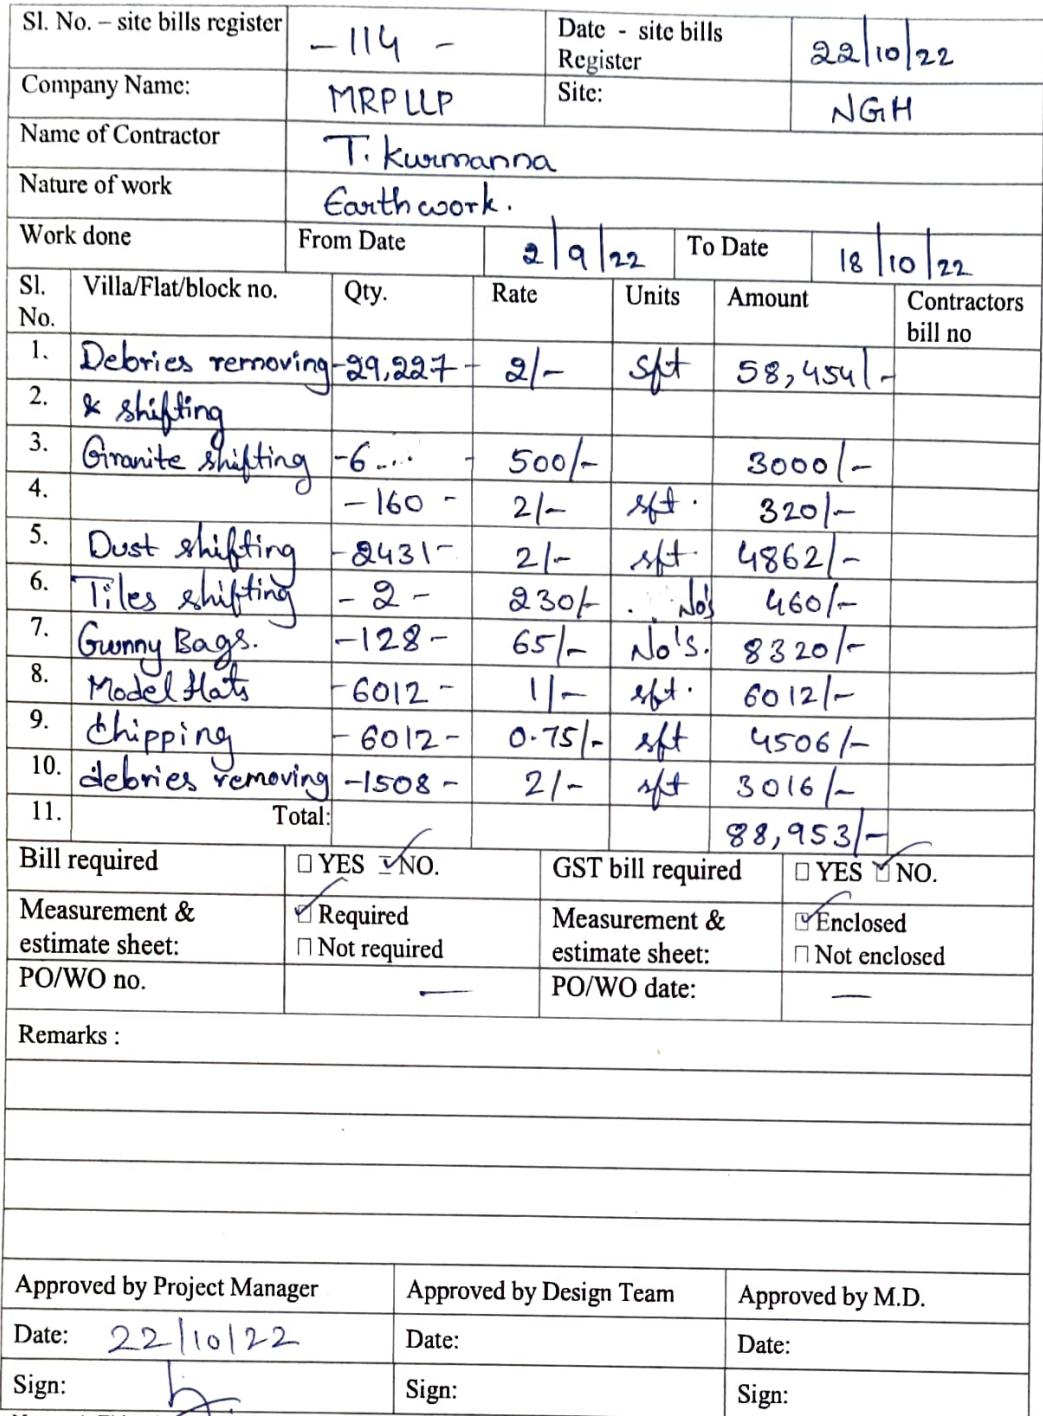 Sl. No. – site bills register - 114 - Date - site bills Register 22/10/22
Company Name: MRPLLP Site: NGH
Name of Contractor T. Kurmanna
Nature of work Earthwork.
Work done From Date 2/9/22 To Date 18/10/22
Sl. No. Villa/Flat/block no. Qty. Rate Units Amount Contractors bill no
1. Debries removing -29,227- 2/- sft 58,454/-
2. & shifting
3. Granite shifting -6 - 500/- 3000/-
4. -160- 2/- sft. 320/-
5. Dust shifting -2431- 2/- sft. 4862/-
6. Tiles shifting -2- 230/- No's 460/-
7. Gunny Bags. -128- 65/- No's. 8320/-
8. Model flats -6012- 1/- sft. 6012/-
9. chipping -6012- 0.75/- sft 4506/-
10. debries removing -1508- 2/- sft 3016/-
11. Total: 88,953/-
Bill required YES NO. GST bill required YES NO.
Measurement & estimate sheet: Required Not required Measurement & estimate sheet: Enclosed Not enclosed
PO/WO no. — PO/WO date: —
Remarks :
Approved by Project Manager Approved by Design Team Approved by M.D.
Date: 22/10/22 Date: Date:
Sign: Sign: Sign: